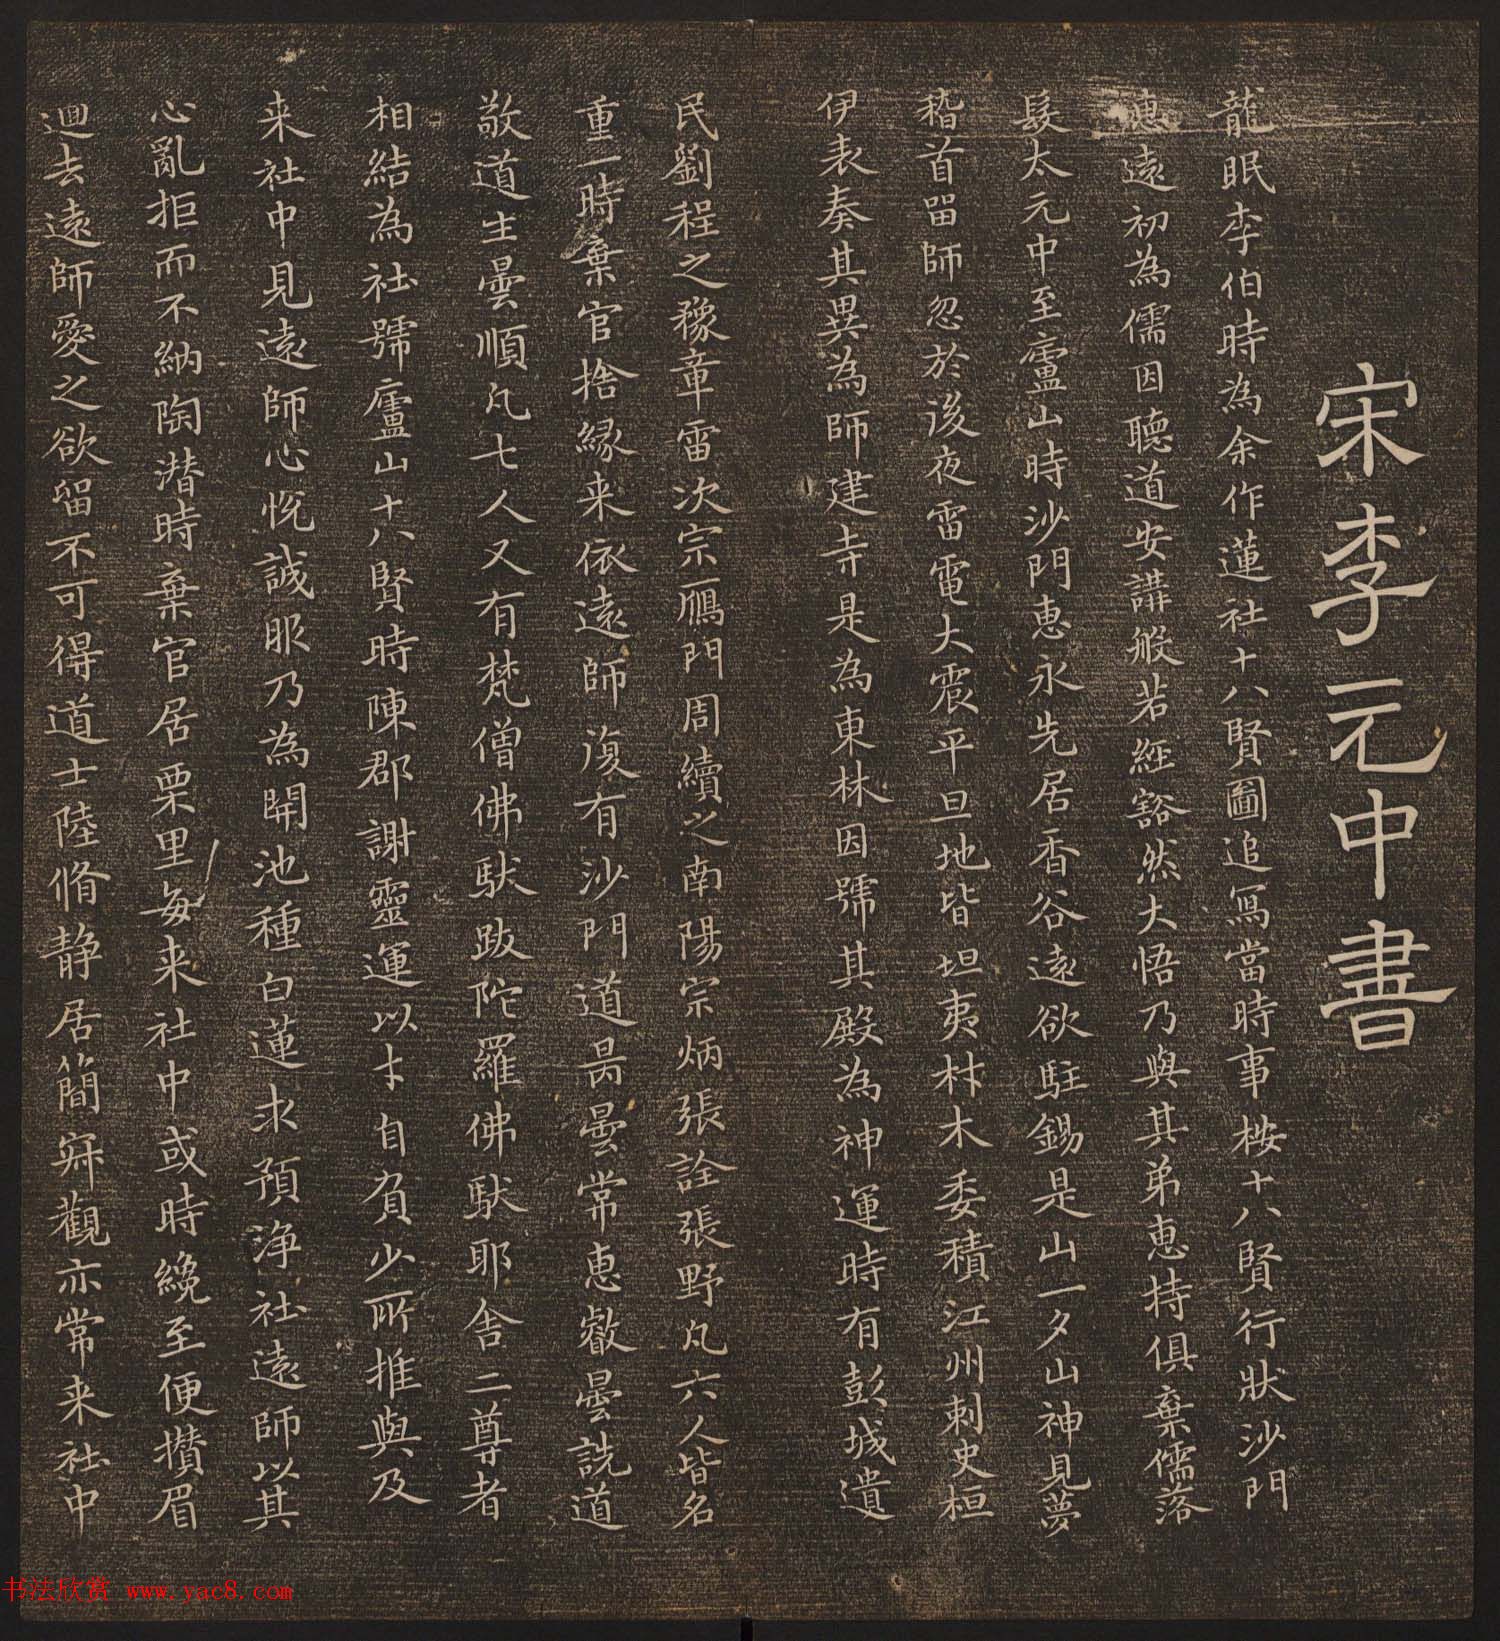 宋李元中書
龍眠李伯時為余作蓮社十八賢圖追寫當時事桉十八賢行狀沙門
惠遠初為儒因聽道安講般若經豁然大悟乃與其弟惠持俱棄儒落
髮太元中至廬山時沙門惠永先居香谷遠欲駐錫是山一夕山神見夢
稽首留師忽於後夜雷電大震平旦地皆坦夷材木委積江州刺史桓
伊表奏其異為師建寺是為東林因號其殿為神運時有彭城遺
民劉程之豫章雷次宗鴈門周續之南陽宗炳張詮張野凡六人皆名
重一時棄官捨緣来依遠師復有沙門道昺曇常惠叡曇詵道
敬道生曇順凡七人又有梵僧佛馱跋陀羅佛馱耶舍二尊者
相結為社號廬山十八賢時陳郡謝靈運以才自負少所推與及
来社中見遠師心悅誠服乃為開池種白蓮求預淨社遠師以其
心亂拒而不納陶潛時棄官居栗里每来社中或時纔至便攢眉
迴去遠師愛之欲留不可得道士陸脩静居簡寂觀亦常来社中
书法欣赏 www.yac8.com